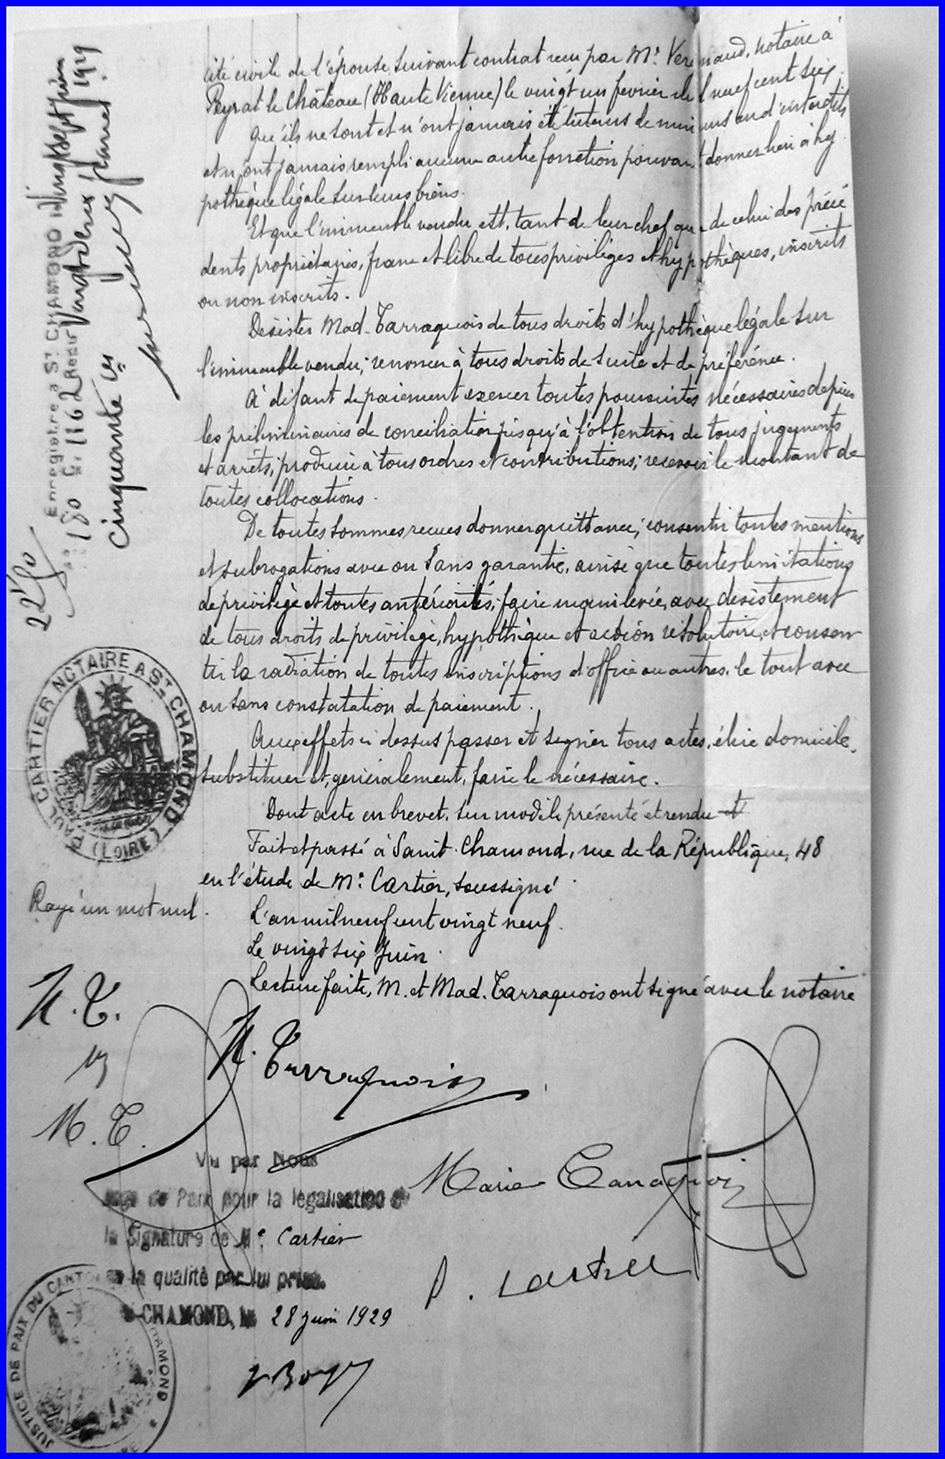 cité civile de l'épouse, suivant contrat reçu par Me Vergnaud, notaire à
Peyrat le Château (Haute Vienne) le vingt un février mil neuf cent six.
Qu'ils ne sont et n'ont jamais été tuteurs de mineurs ou d'interdits
et n'ont jamais rempli aucune autre fonction pouvant donner lieu à hy-
pothèque légale sur leurs biens.
Et que l'immeuble vendu est, tant de leur chef que de celui des précé
dents propriétaires, franc et libre de tous privilèges et hypothèques, inscrits
ou non inscrits.
Désister Mad. Tarraquois de tous droits d'hypothèque légale sur
l'immeuble vendu; renoncer à tous droits de suite et de préférence.
A défaut de paiement exercer toutes poursuites nécessaires depuis
les préliminaires de conciliation jusqu'à l'obtention de tous jugements
et arrêts; produire à tous ordres et contributions; recevoir le montant de
toutes collocations.
De toutes sommes reçues donner quittance; consentir toutes mentions
et subrogations avec ou sans garantie, ainsi que toutes limitations
de privilège et toutes antériorités; faire mainlevée, avec désistement
de tous droits de privilège, hypothèque et action résolutoire, et consen
tir la radiation de toutes inscriptions d'office ou autres, le tout avec
ou sans constatation de paiement.
Aux effets ci dessus passer et signer tous actes, élire domicile,
substituer et, généralement, faire le nécessaire.
Dont acte en brevet, sur modèle présenté et rendu et
Fait et passé à Saint-Chamond, rue de la République, 48
en l'étude de Me Cartier, soussigné.
L'an mil neuf cent vingt neuf.
Le vingt six Juin.
Lecture faite, M. et Mad. Tarraquois ont signé avec le notaire
Enregistré à St CHAMOND le vingt sept juin 1929
180 C. 1162 Reçu Vingt deux francs
Cinquante ces
22f50
PAUL CARTIER NOTAIRE A ST CHAMOND (LOIRE)
Rayé un mot nul.
M. T.
Tarraquois
M. T.
Marie Tarraquois
P. Cartier
Vu par Nous
Juge de Paix pour la légalisation de
la Signature de Me Cartier
en la qualité par lui prise.
St-CHAMOND, le 28 juin 1929
JUSTICE DE PAIX DU CANTON